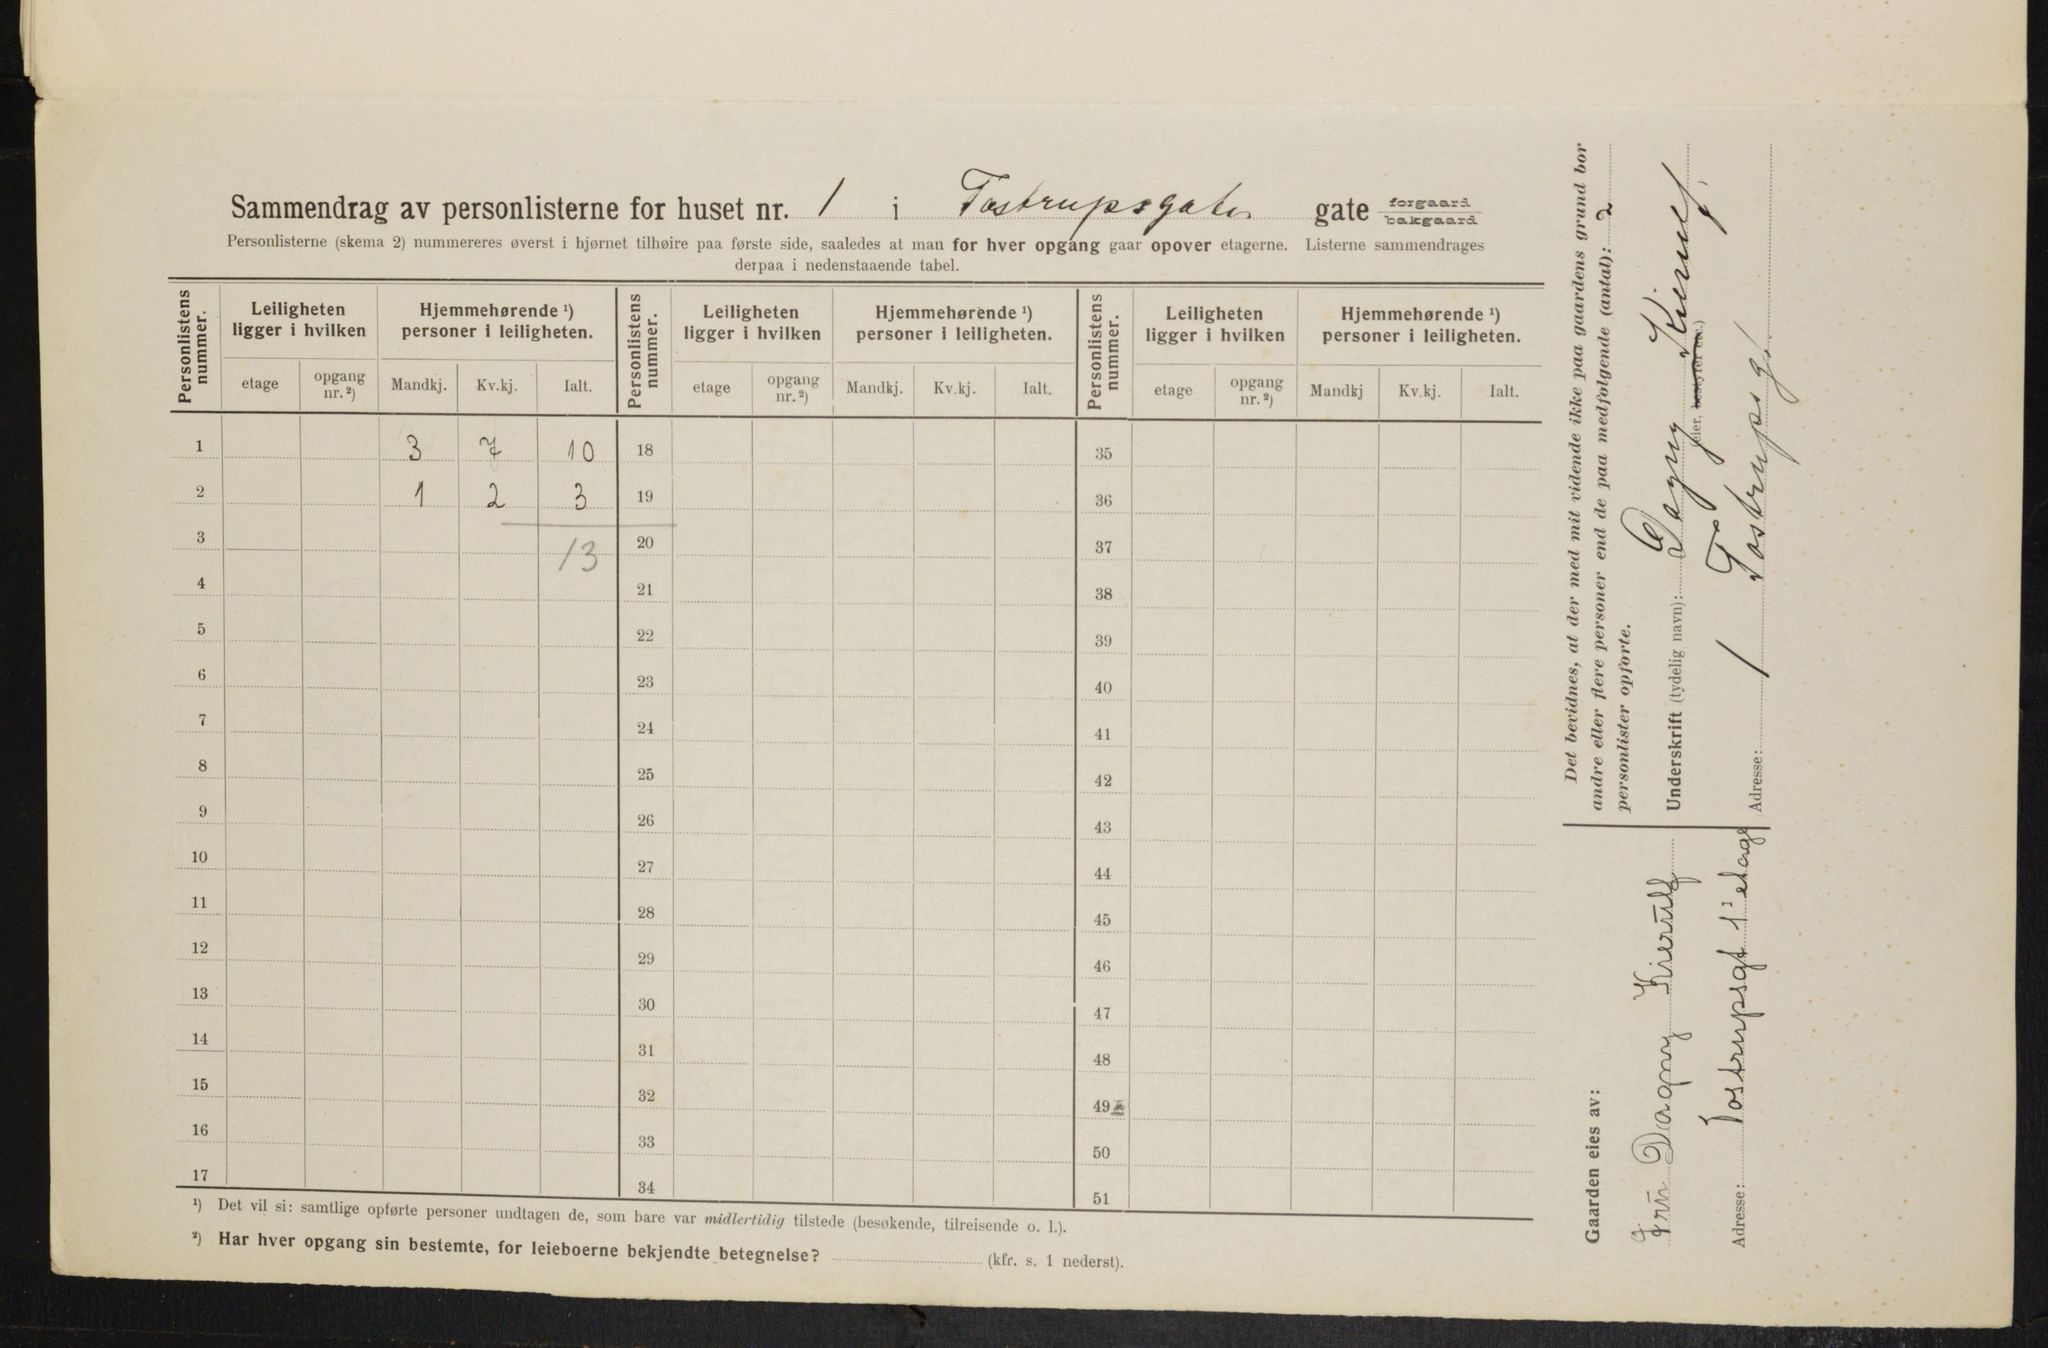 Sammendrag av personlisterne for huset nr. 1 i Tostrupsgaten gate forgaard bakgaard
Personlisterne (skema 2) nummereres øverst i hjørnet tilhøire paa første side, saaledes at man for hver opgang gaar opover etagerne. Listerne sammendrages
derpaa i nedenstaaende tabel.
Personlistens nummer. Leiligheten ligger i hvilken Hjemmehørende ¹) personer i leiligheten. Personlistens nummer. Leiligheten ligger i hvilken Hjemmehørende ¹) personer i leiligheten. Personlistens nummer. Leiligheten ligger i hvilken Hjemmehørende ¹) personer i leiligheten.
etage opgang nr. ²) Mandkj. Kv.kj. Ialt. etage opgang nr. ²) Mandkj. Kv.kj. Ialt. etage opgang nr. ²) Mandkj Kv.kj. Ialt.
1 3 7 10 18 35
2 1 2 3 19 36
3 13 20 37
4 21 38
5 22 39
6 23 40
7 24 41
8 25 42
9 26 43
10 27 44
11 28 45
12 29 46
13 30 47
14 31 48
15 32 49
16 33 50
17 34 51
¹) Det vil si: samtlige opførte personer undtagen de, som bare var midlertidig tilstede (besøkende, tilreisende o. l.).
²) Har hver opgang sin bestemte, for leieboerne bekjendte betegnelse? (kfr. s. 1 nederst).
Det bevidnes, at der med mit vidende ikke paa gaardens grund bor
andre eller flere personer end de paa medfølgende (antal): 2
personlister opførte.
Underskrift (tydelig navn): Dagny Kierulf
(eier, bestyrer etc.)
Adresse: 1 Tostrupsgt
Gaarden eies av:
Fru Dagny Kierulf
Adresse: Tostrupsgt 1' etage